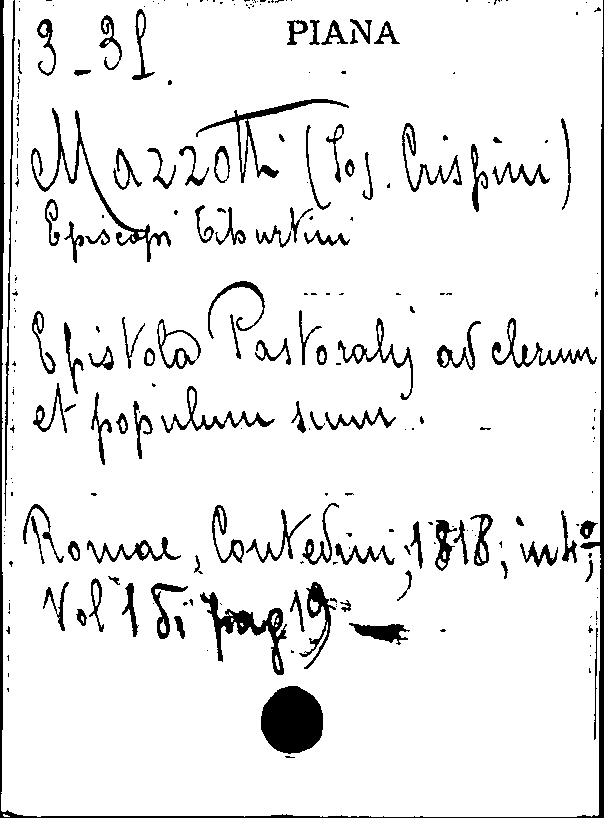 3_31.
PIANA
Mazzotti (Jos. Crispini)
Episcopi Tiburtini
Epistola Pastoralis ad clerum
et populum suum.
Romae, Contedini, 1818; in 4º;
Vol 1 di pag 19 —